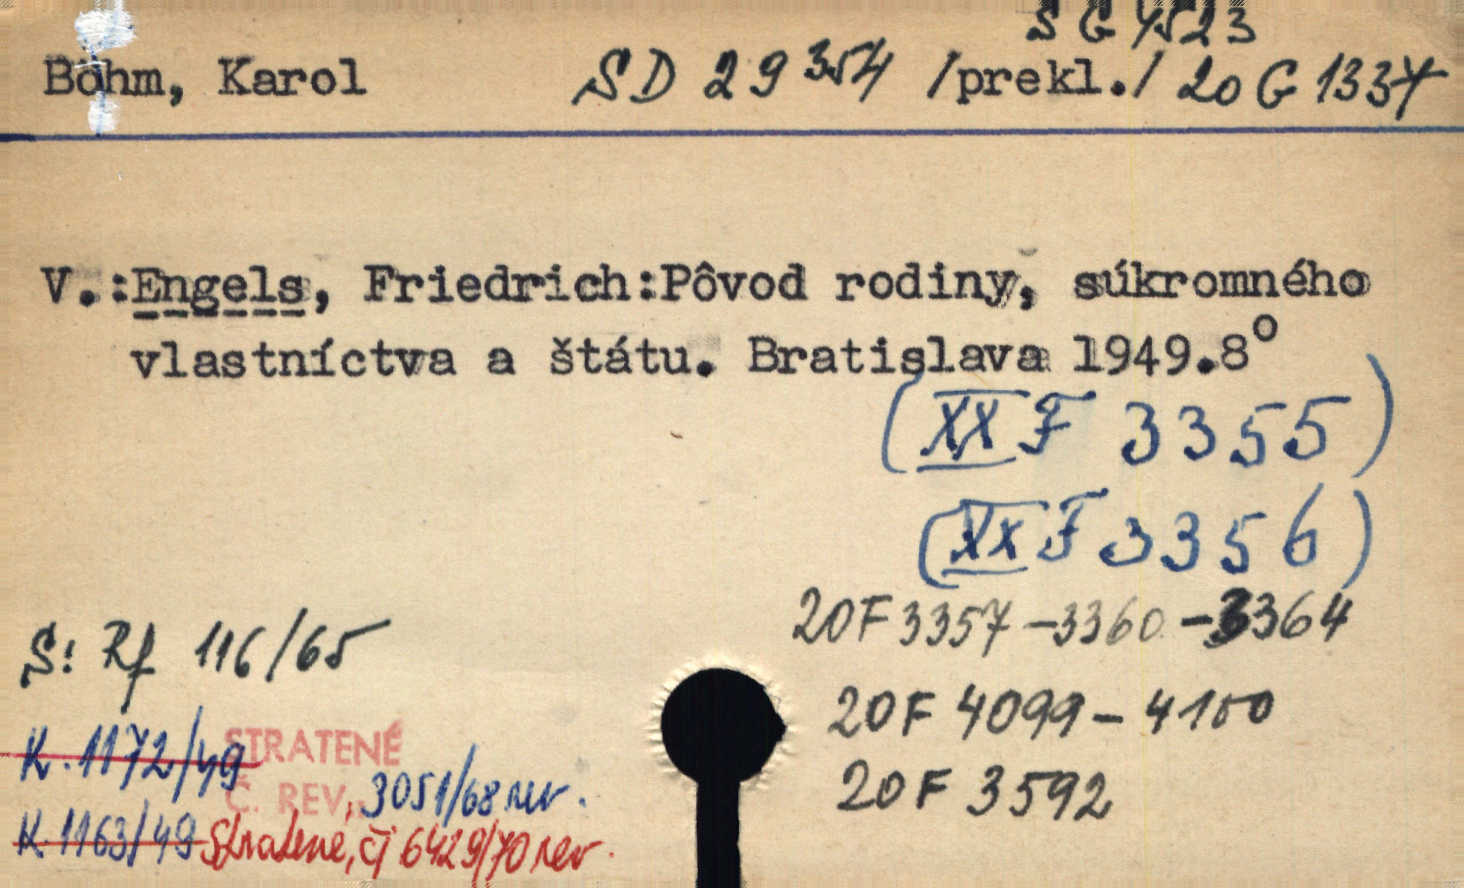 SG 4523
Böhm, Karol SD 29354 /prekl./ 20 G 1337
V.:Engels, Friedrich:Pôvod rodiny, súkromného
vlastníctva a štátu. Bratislava 1949.8°
(XX F 3355)
(XX F 3356)
20F 3357-3360-3364
S: Rf 116/65
20F 4099-4100
K. 1172/49 STRATENÉ
Č. REV. 3051/68 rev.
20F 3592
K. 1163/49 Stratené, čj 6429/70 rev.